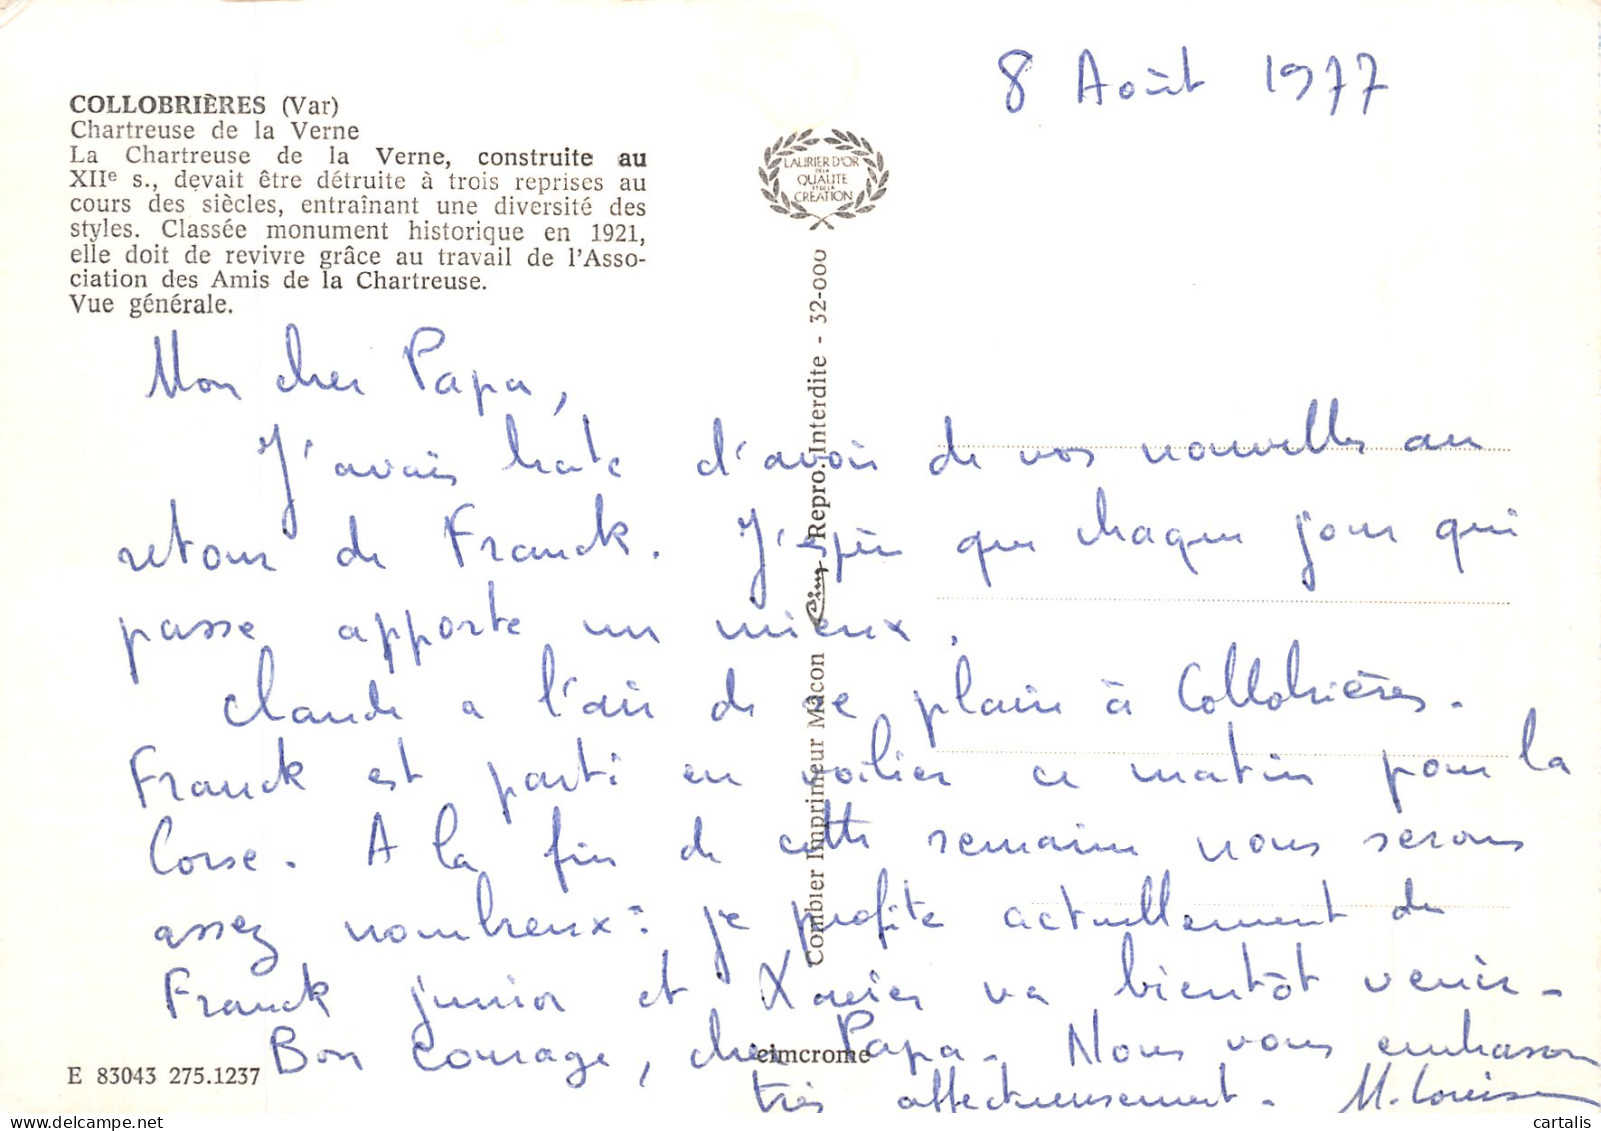 8 Août 1977
COLLOBRIÈRES (Var)
Chartreuse de la Verne
La Chartreuse de la Verne, construite au
XIIe s., devait être détruite à trois reprises au
cours des siècles, entraînant une diversité des
styles. Classée monument historique en 1921,
elle doit de revivre grâce au travail de l'Asso-
ciation des Amis de la Chartreuse.
Vue générale.
LAURIER D'OR
DE LA
QUALITE
ET DE LA
CREATION
Combier Imprimeur Mâcon Cim Repro. Interdite - 32-000
Mon cher Papa,
J'avais hate d'avoir de vos nouvelles au
retour de Franck. J'espère que chaque jour qui
passe apporte un mieux.
Claude a l'air de se plaire à Collobrières.
Franck est parti en voilier ce matin pour la
Corse. A la fin de cette semaine nous serons
assez nombreux : je profite actuellement de
Franck junior et Xavier va bientôt venir.
Bon courage, cher Papa. Nous vous embrassons
très affectueusement. M. Louise
cimcrome
E 83043 275.1237
cartalis
www.delcampe.net